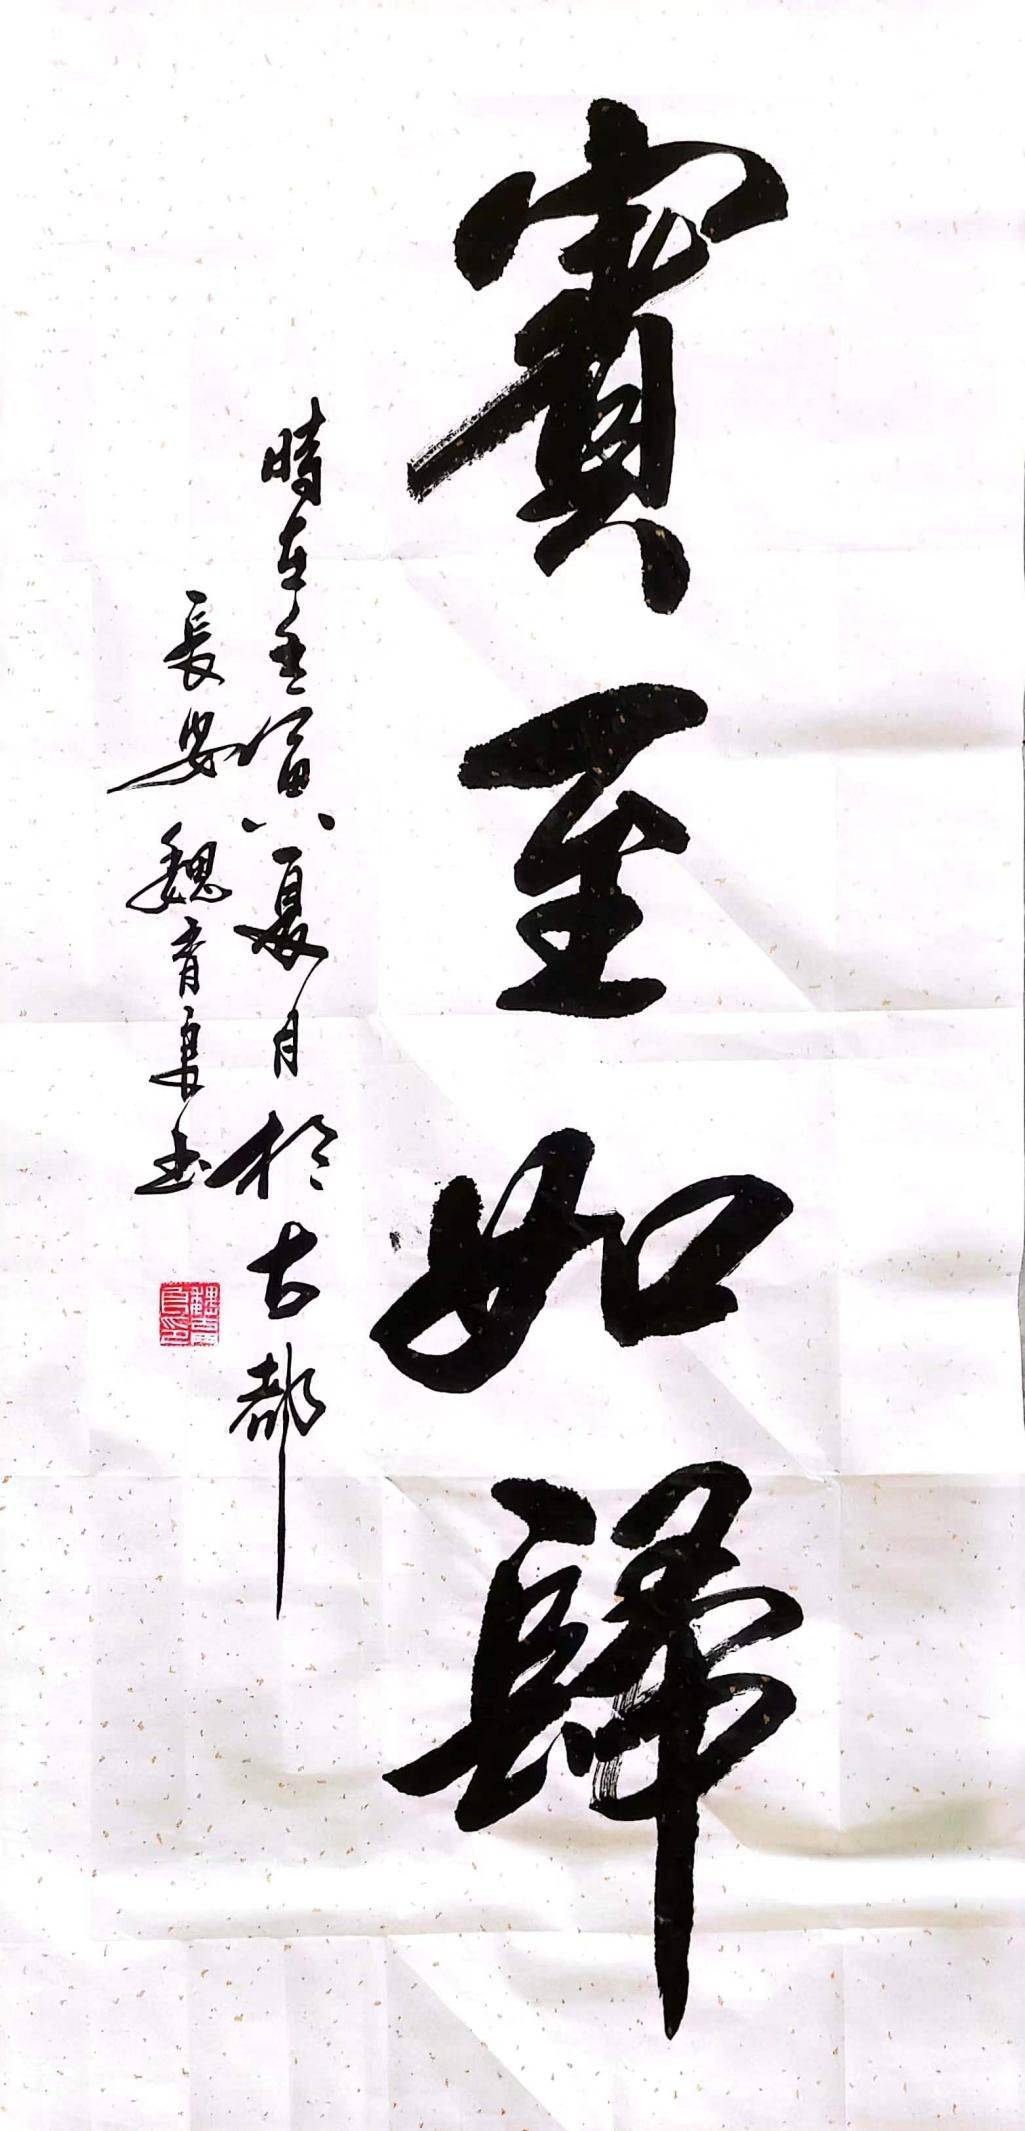 賓至如歸
時在壬寅夏月於古都
長安魏青良書